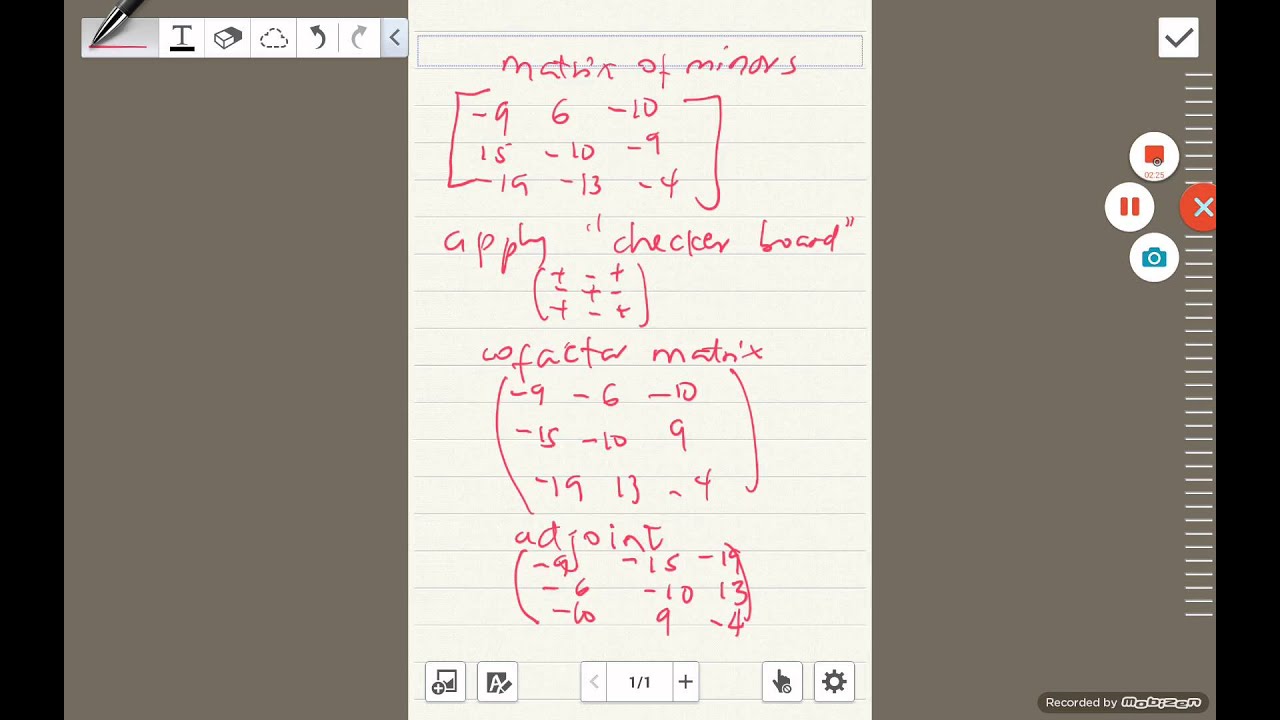 T
matrix of minors
-9 6 -10
15 -10 -9
-19 -13 -4
apply "checker board"
+ - +
- + -
+ - +
cofactor matrix
-9 -6 -10
-15 -10 9
-19 13 -4
adjoint
-9 -15 -19
-6 -10 13
-10 9 -4
02:25
1/1
Recorded by mobizen